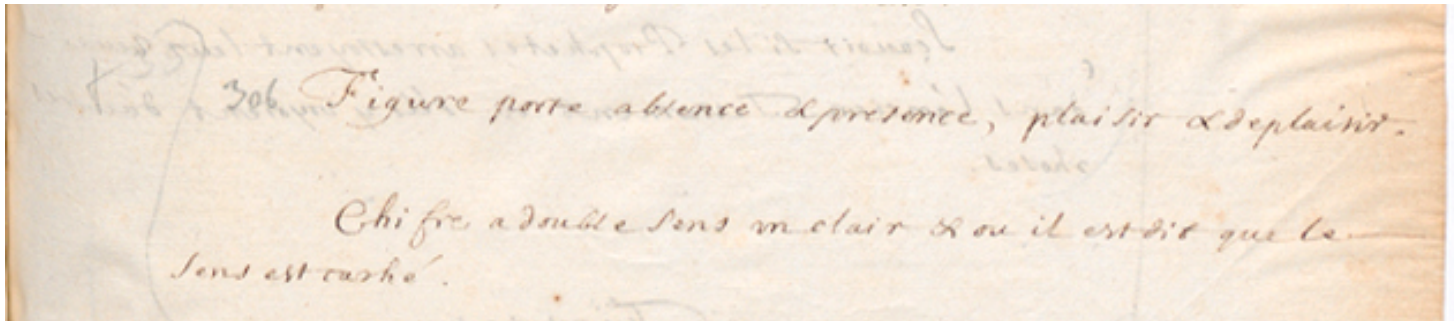 306 Figure porte absence & presence, plaisir & deplaisir.
Chifre a double sens un clair & ou il est dit que le
sens est caché.